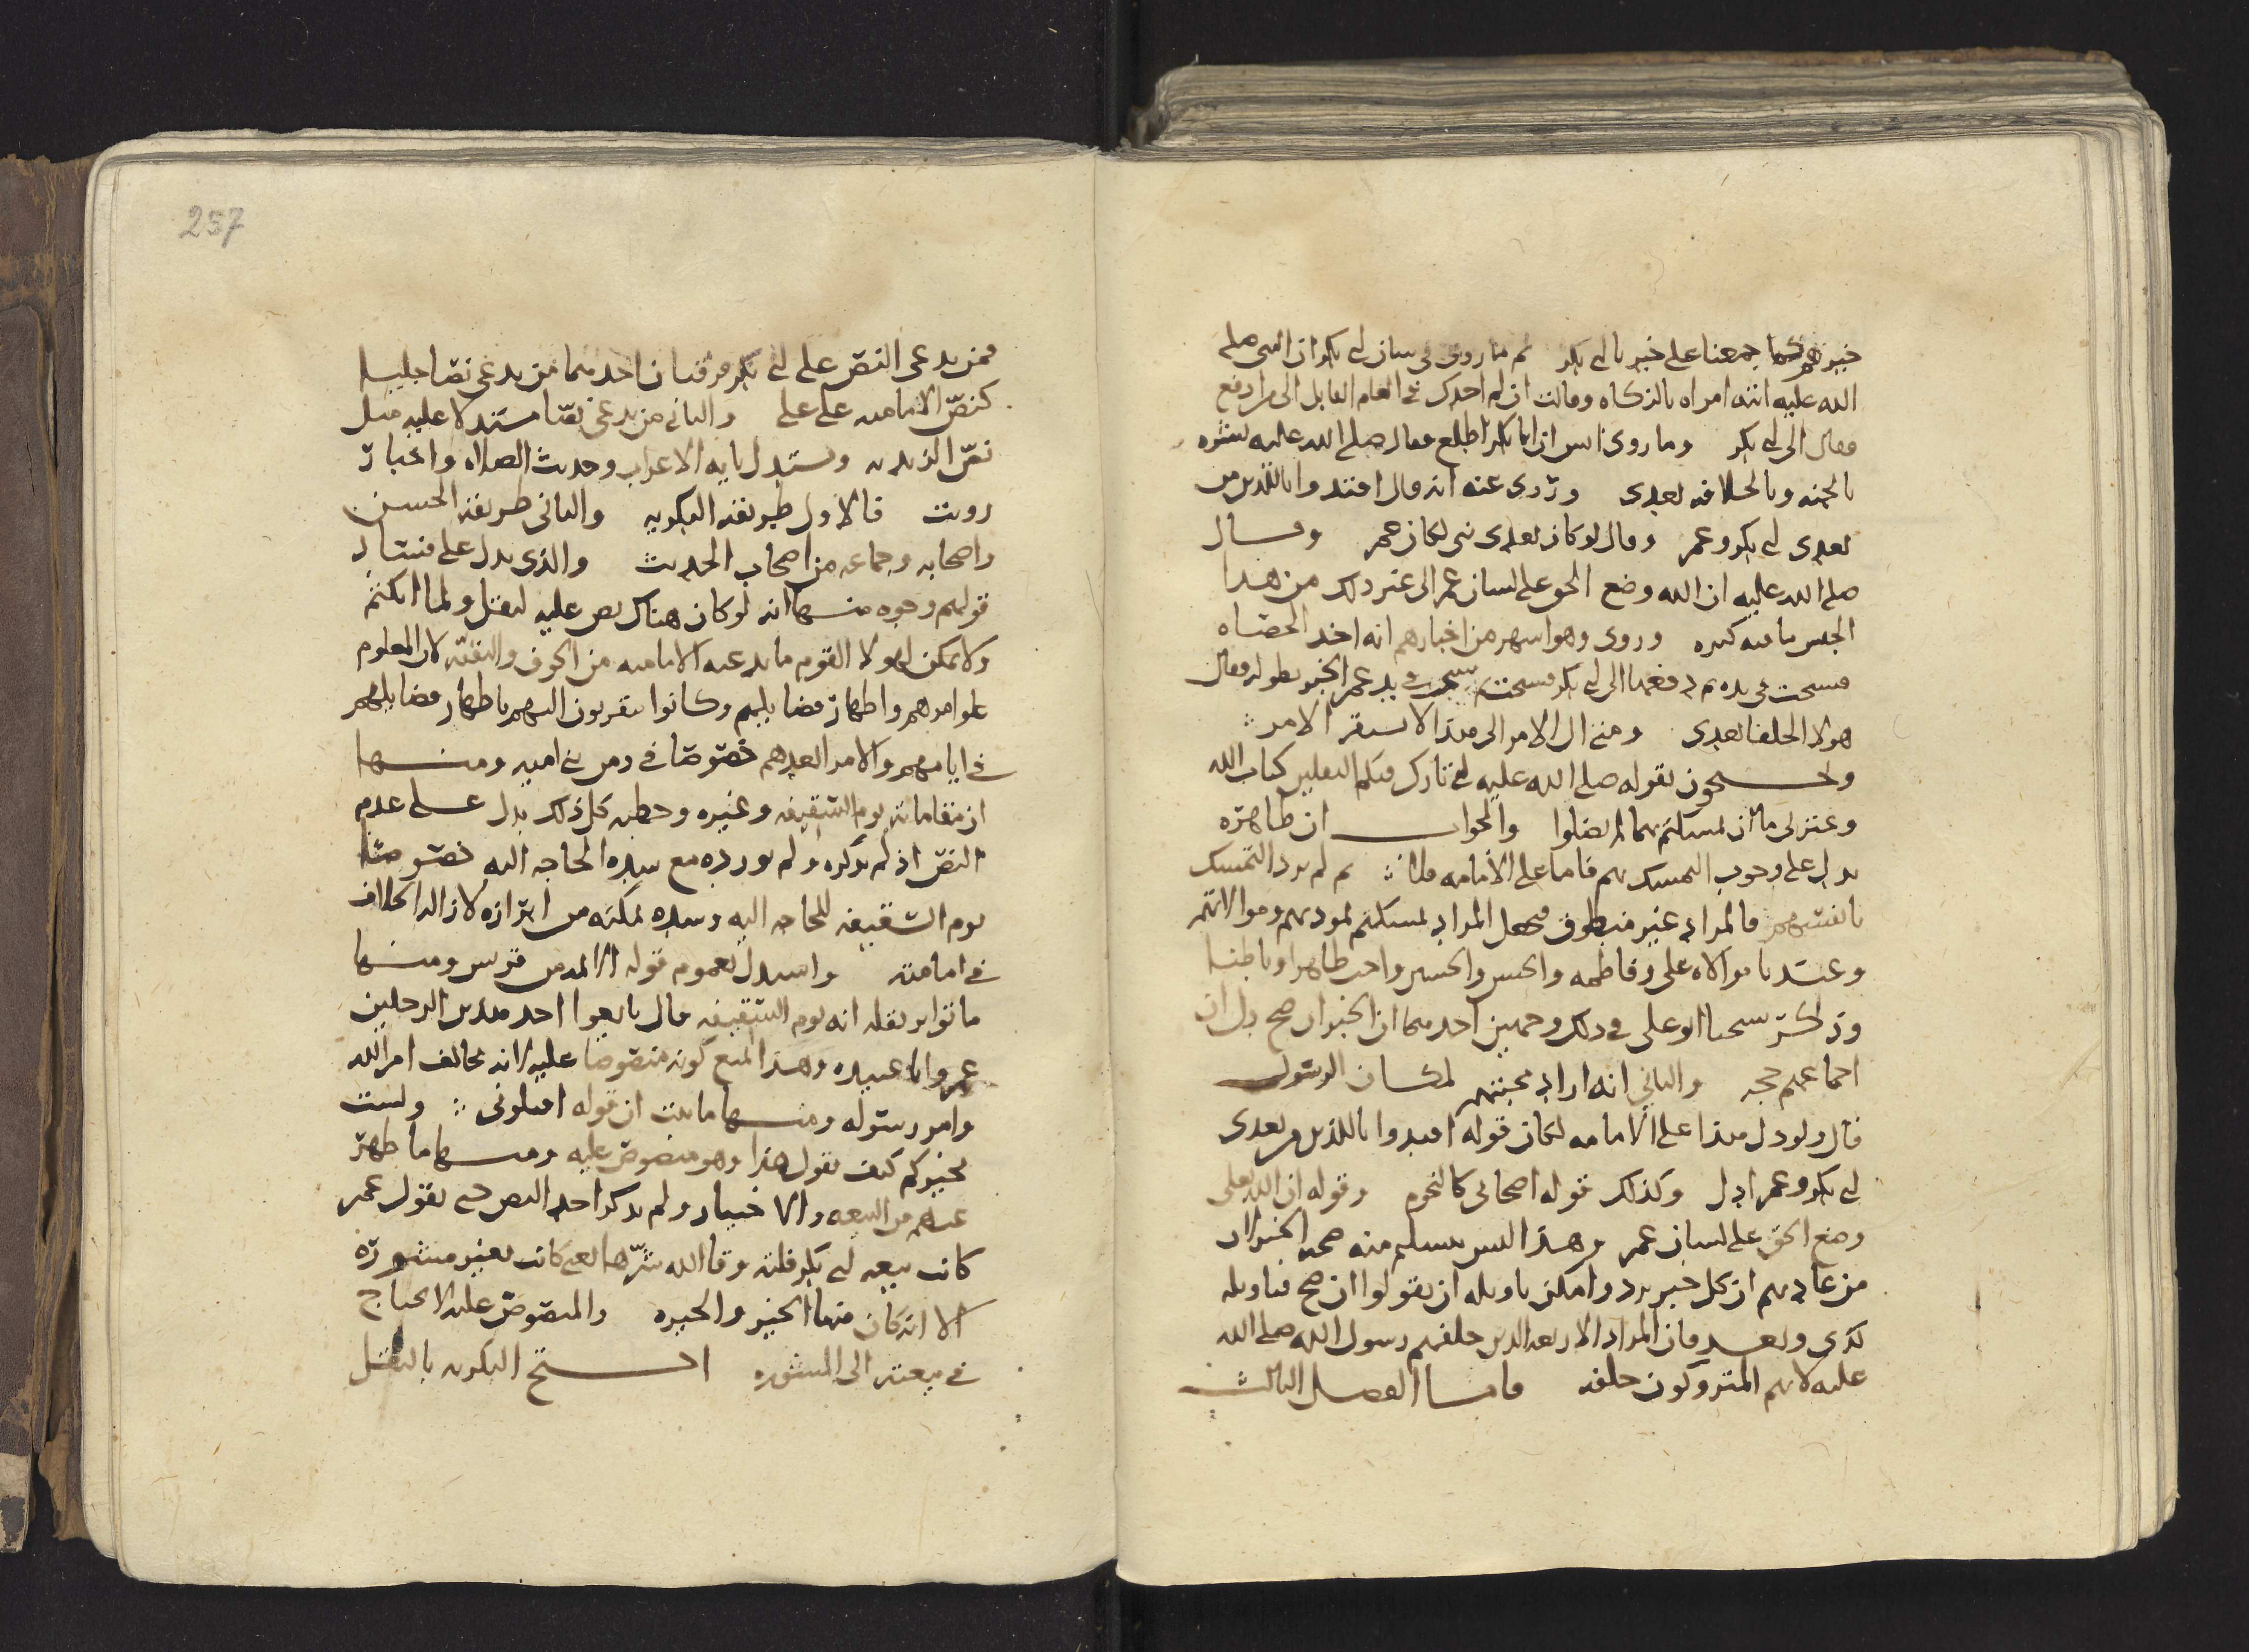 خبر عمر كما جمعنا على خبر ابي بكر ثم ما روي في بيان ابي بكر ان النبي صلى
الله عليه اتته امراه بالزكاه وقالت ان لم اجدك في العام القابل الى من ادفع
فقال الى ابي بكر وما روى انس ان ابا بكر اطلع فقال صلى الله عليه بشره
بالجنه وبالخلافه بعدي وروي عنه انه قال اقتدوا باللذين من
بعدي ابي بكر وعمر وقال لو كان بعدي نبي لكان عمر وقال
صلى الله عليه ان الله وضع الحق على لسان عمر الى غير ذلك من هذا
الجنس ما فيه كثره وروي وهو اشهر من اخبارهم انه اخذ الحصاه
فسبحت في يده ثم دفعها الى ابي بكر فسبحت ثم سبحت في يد عمر الخبر بطوله فقال
هولا الخلفا بعدي ومتى ال الامر الى هذا لا يستقر الامر
ويحتجون بقوله صلى الله عليه اني تارك فيكم الثقلين كتاب الله
وعترتي ما ان تمسكتم بهما لم تضلوا والجواب ان ظاهره
يدل على وجوب التمسك بهم فاما على الامامه فلا ثم لم يرد التمسك
بانفسهم فالمراد غير منطوق فجعل المراد تمسكتم بمودتهم وموالاتهم
وعندنا موالاه علي وفاطمه والحسن والحسين واجب ظاهرا وباطنا
وذكر شيخنا ابو علي في ذلك وجهين احدهما ان الخبر ان صح دل ان
اجماعهم حجه والثاني انه اراد محبتهم لمكان الرسول
قال ولو دل هذا على الامامه لكان قوله اقتدوا باللذين من بعدي
ابي بكر وعمر ادل وكذلك قوله اصحابي كالنجوم وقوله ان الله تعالى
وضع الحق على لسان عمر وهذا ليس بتسليم منه صحه الخبر لان
من عادتهم ان كل خبر يرد وامكن تاويله ان يقولوا ان صح فتاويله
كذي وبعد فان المراد الاربعه الذين خلفهم رسول الله صلى الله
عليه لانهم المتروكون خلفه فاما الفصل الثالث
257
فمن يدعي النص على ابي بكر فرقتان احدهما من يدعي نصا جليا
كنص الاماميه على علي والثاني من يدعي نصا مستدلا عليه مثل
نص الزيديه ويستدل بايه الاعراب وحديث الصلاه واخبار
رويت فالاول طريقه البكريه والثاني طريقه الحسن
واصحابه وجماعه من اصحاب الحديث والذي يدل على فساد
قولهم وجوه منها انه لو كان هناك نص عليه لنقل ولما انكتم
ولا يمكن لهولا القوم ما يدعيه الاماميه من الخوف والتقيه لان المعلوم
علو امرهم واظهار فضايلهم وكانوا يتقربون اليهم باظهار فضايلهم
في ايامهم والامر بعدهم خصوصا في زمن بني اميه ومنها
ان مقاماته يوم السقيفه وغيره وخطبه كل ذلك يدل على عدم
النص اذ لم يذكره ولم يورده مع شده الحاجه اليه خصوصا
يوم السقيفه للحاجه اليه وشده تمكنه من ابرازه لازاله الخلاف
في امامته واستدل بعموم قوله الايمه من قريش ومنها
ما تواتر نقله انه يوم السقيفه قال بايعوا احد هذين الرجلين
عمر وابا عبيده وهذا يمنع كونه منصوصا عليه لانه مخالف امر الله
وامر رسوله ومنها ما ثبت ان قوله اقيلوني ولست
بخيركم كيف يقول هذا وهو منصوص عليه ومنها ما ظهر
عنهم من البيعه والاختيار ولم يذكر احد النص حتى يقول عمر
كانت بيعه ابي بكر فلته وقا الله شرها يعني كانت بغير مشوره
الا انه كان فيها الخير والخيره والمنصوص عليه لا يحتاج
في بيعته الى المشوره احتج البكريه بالنقل